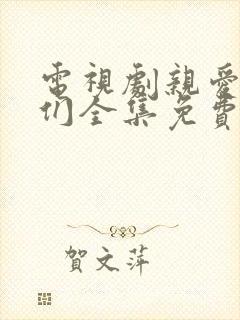 電視劇親愛
们全集免費
賀文萍